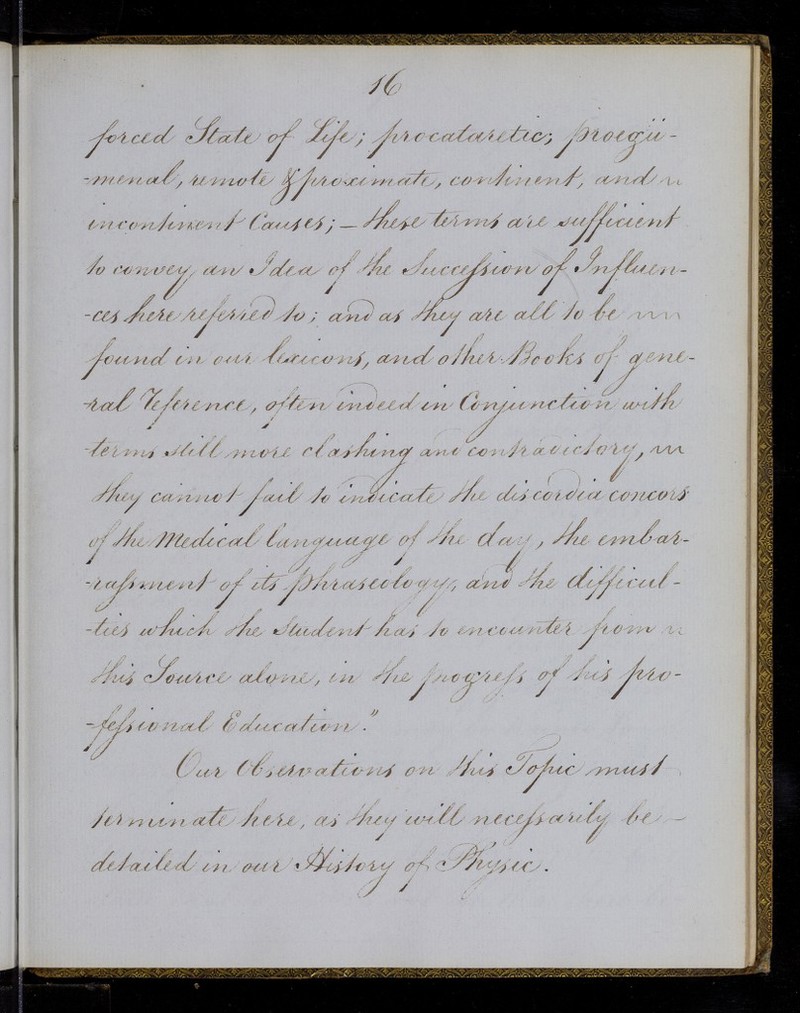 16
forced State of Life; procataretic; proegü-
-menal, remote & proximate, continent, and
incontinent Causes; — these terms are sufficient
to convey an Idea of the Succession of Influen-
-ces here referred to; and as they are all to be
found in our lexicons, and other Books of gene-
-ral Reference, often indeed in Conjunction with
terms still more clashing and contradictory,
they cannot fail to indicate the discordia concors
of the Medical Language of the day, the embar-
-rassment of its phraseology, and the difficul-
-ties which the Student has to encounter from
this Source alone, in the progress of his pro-
-fessional Education."
Our Observations on this Topic must
terminate here, as they will necessarily be —
detailed in our History of Physic.